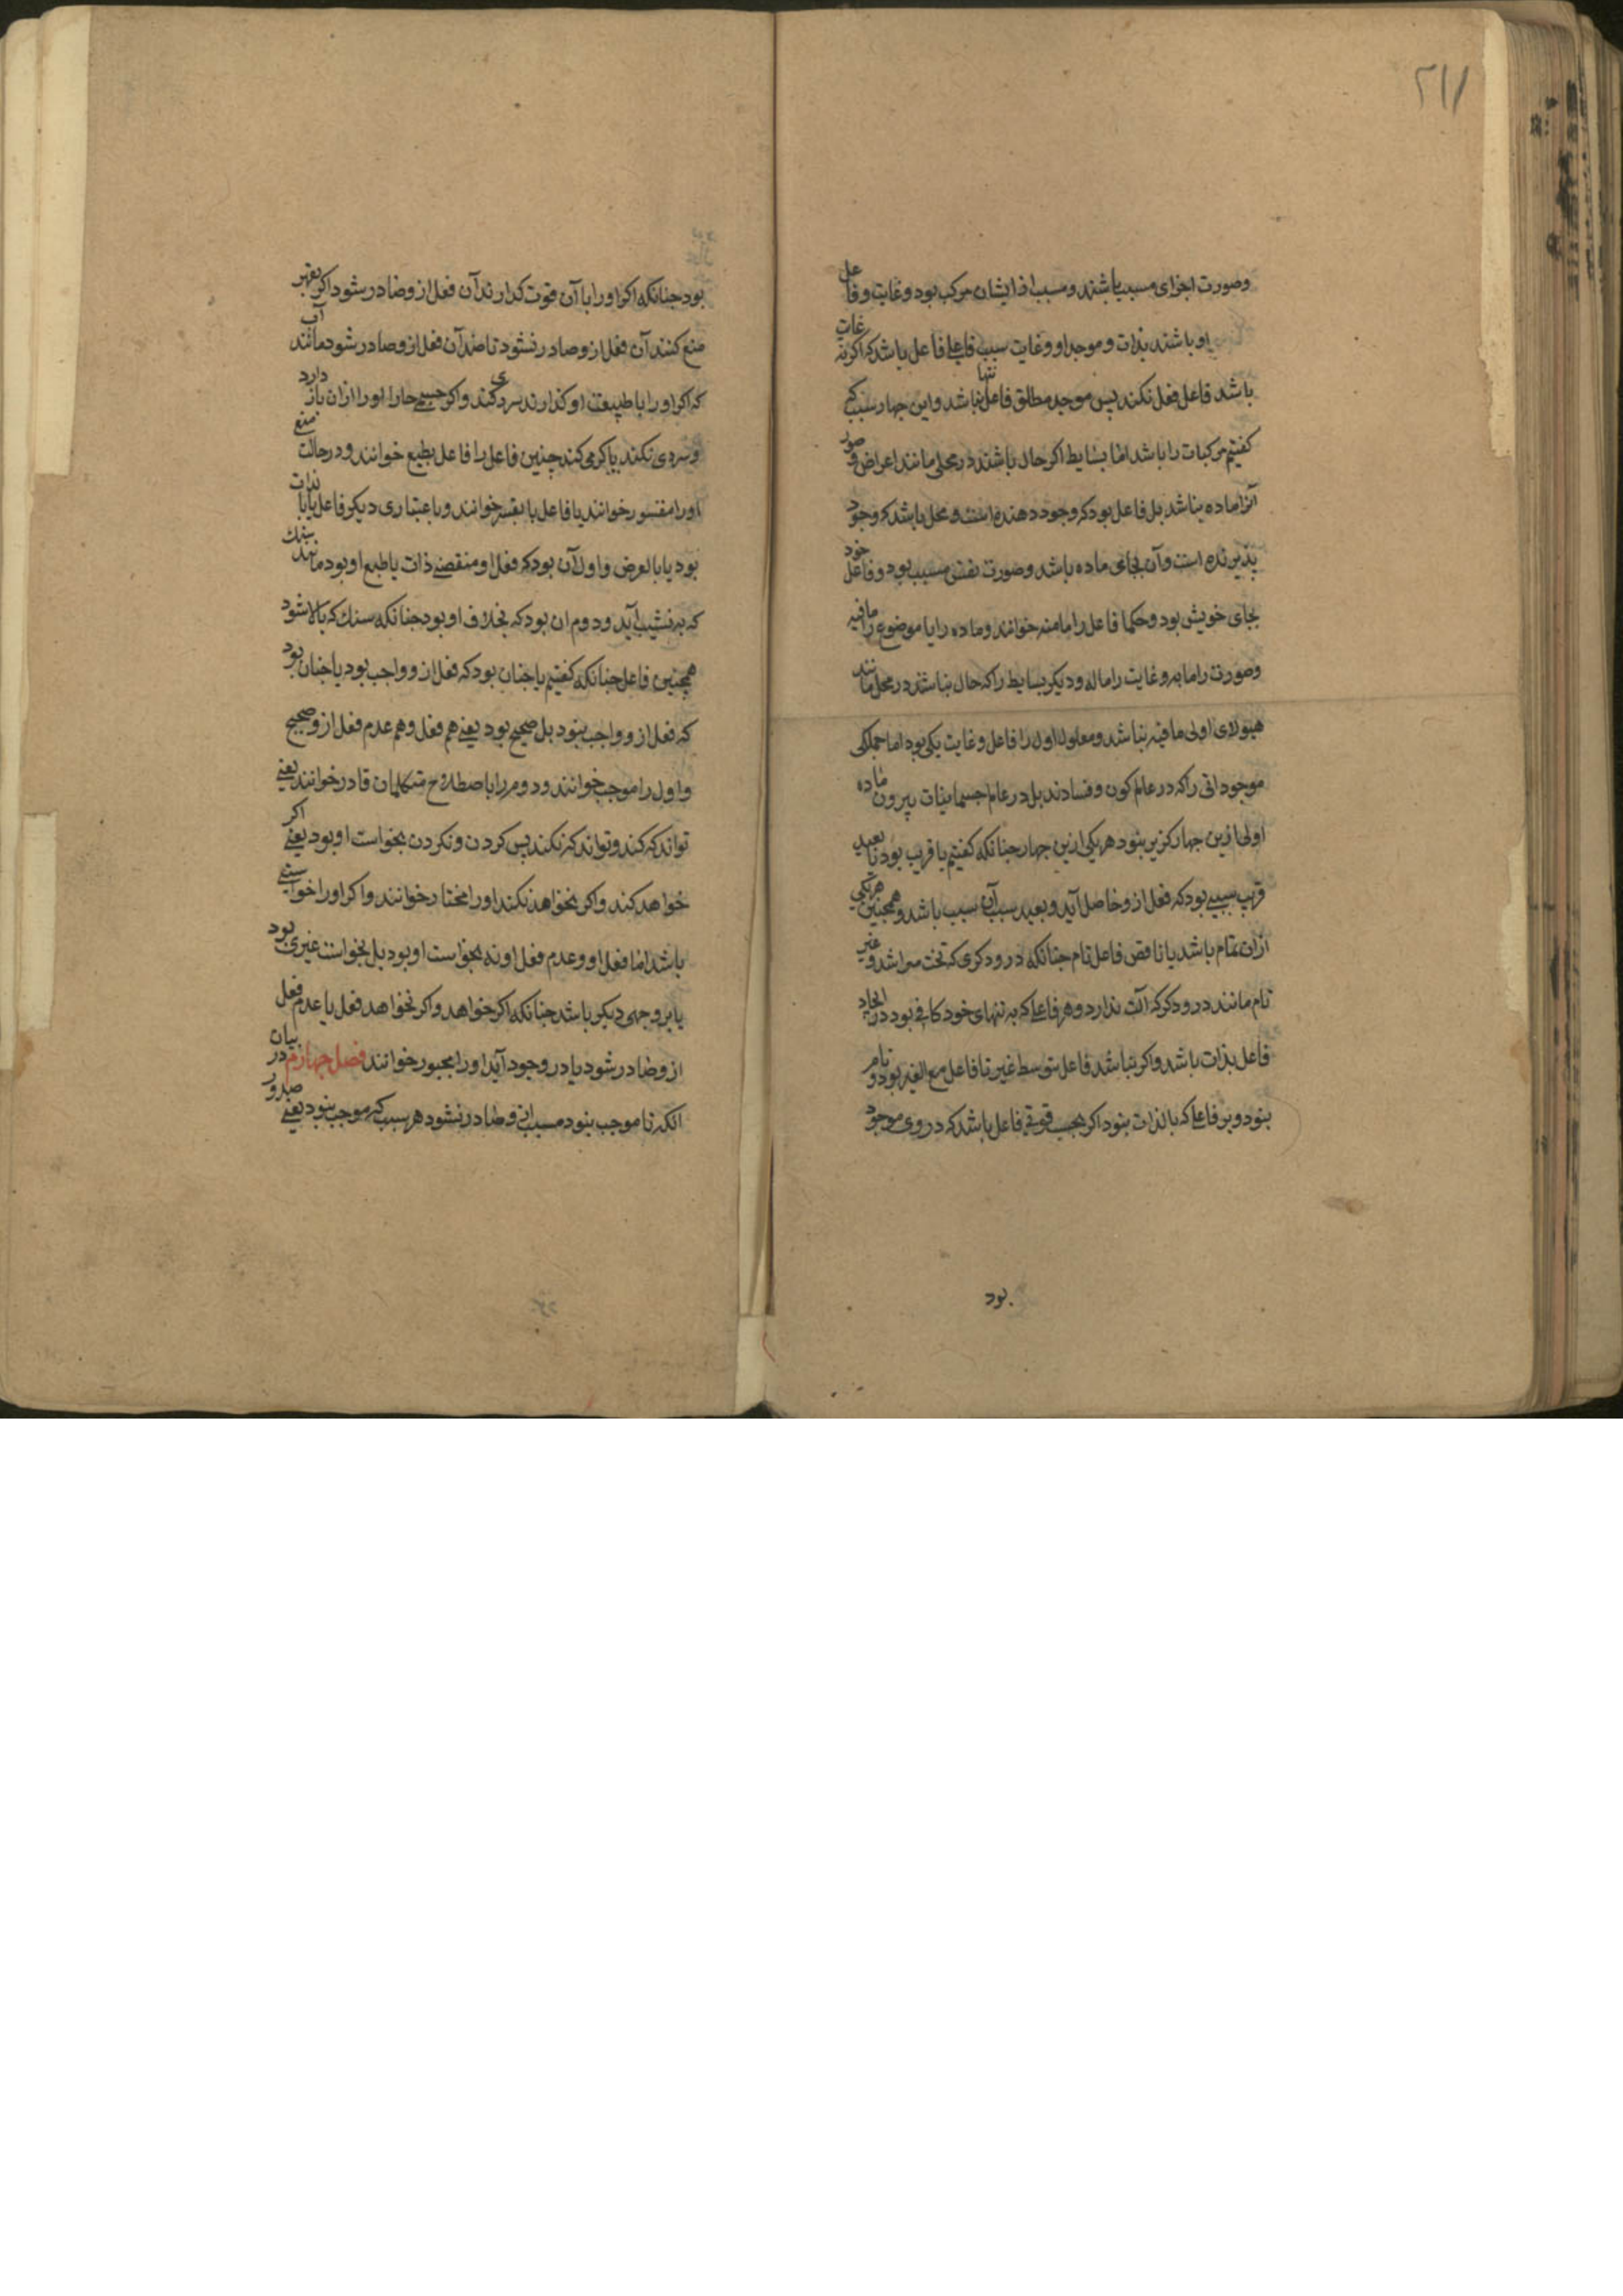 ۲۱۱
وصورت اجزای مسبب باشند و مسبب از ایشان مرکب بود و غایت و فاعل
او باشند بذات و موجد او و غایت سبب فاعلی فاعل باشد که اگر نه غایت
باشد فاعل فعل نکند پس موجد مطلق فاعل تنها نباشد و این چهار سبب که
کفتیم مرکبات را باشد اما بسایط اکر حال باشند در محلی مانند اعراض و صور
آنرا ماده نباشد بل فاعل بود که وجود دهنده است و محل باشد که وجود
پذیرنده است و آن بجای ماده باشد و صورت نفس مسبب بود و فاعل خود
بجای خویش بود و حکما فاعل را مامنه خوانند و ماده را یا موضوع را مافیه
وصورت را مابه و غایت را ماله و دیکر بسایط را که حال نباشند در محل مانند
هیولای اولی مافیه نباشد و معلول اول را فاعل و غایت یکی بود اما جملکی
موجوداتی را که در عالم کون و فسادند بل در عالم جسمانیات بیرون ماده
اولی ازین چهار کزیر نبود هر یکی ازین چهار جنانکه کفتیم یا قریب بود یا بعید
قریب سببی بود که فعل ازو حاصل آید و بعید سبب آن سبب باشد و همچنین هر یکی
ازان تمام باشد یا ناقص فاعل تام جنانکه درودکری که تخت میراشد و غیر
تام مانند درودکر که آلت ندارد و هر فاعلی که به تنهای خود کافی بود در ایجاد
فاعل بذات باشد و اکر نباشد فاعل بتوسط غیر تا فاعل مع الغیر بود و تام
نبود و هر فاعلی که بالذات نبود اکر بحسب قوتی فاعل باشد که در وی موجود
بود
بود جنانکه اکر او را با آن قوت کذارند آن فعل ازو صادر شود اکر بقهر
منع کنند آن فعل ازو صادر نشود تا ضد آن فعل ازو صادر شود مانند آب
که اکر او را با طبیعت او کذارند سردی کند و اکر جسمی حار او را ازان باز دارد
و سردی نکند یا کرمی کند چنین فاعل را فاعل بطبع خوانند و در حالت منع
او را مقسور خوانند یا فاعل یا بقسر خوانند و باعتباری دیکر فاعل یا بالذات
بود یا بالعرض و اول آن بود که فعل او مقتضی ذات یا طبع او بود مانند سنک
که به نشیب آید و دوم ان بود که بخلاف او بود جنانکه سنک که بالا شود
همچنین فاعل جنانکه کفتیم یا جنان بود که فعل ازو واجب بود یا جنان بود
که فعل ازو واجب نبود بل صحیح بود یعنی هم فعل و هم عدم فعل ازو صحیح
و اول را موجب خوانند و دوم را باصطلاح متکلمان قادر خوانند یعنی
تواند که کند و تواند که نکند پس کردن و نکردن بخواست او بود یعنی اکر
خواهد کند و اکر نخواهد نکند او را مختار خوانند و اکر او را خواستی
باشد اما فعل او و عدم فعل او نه بخواست او بود بل بخواست غیری بود
یا بر وجهی دیکر باشد جنانکه اکر خواهد و اکر نخواهد فعل یا عدم فعل
ازو صادر شود یا در وجود آید او را مجبور خوانند فصل چهارم در بیان
انکه تا موجب نبود مسبب ازو صادر نشود هر سبب که موجب نبود یعنی صدور